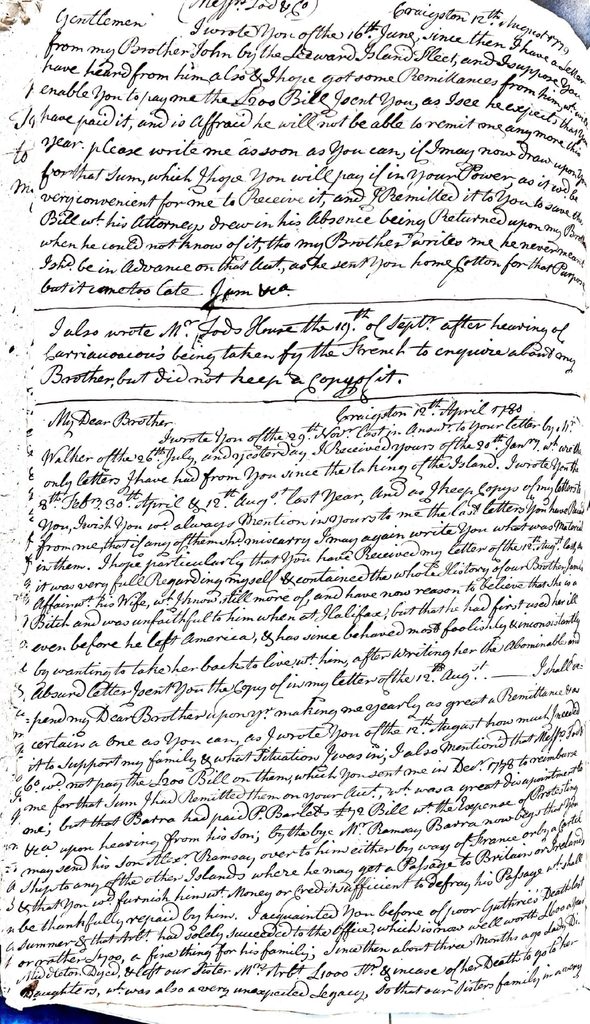 (Messrs. Tod & Co)
Craigston 12th August 1779
Gentlemen
I wrote You of the 16th June, since then I have a Letter
from my Brother John by the Leeward Island Fleet, and I suppose You
have heard from him also & I hope got some Remittances from him, wt. will
enable You to pay me the £200 Bill I sent You, as I see he expects that You
have paid it, and is Affraid he will not be able to remit me any more this
year. please write me as soon as You can, if I may now draw upon You
for that Sum, which I hope You will pay if in Your Power, as it wd. be
very convenient for me to Receive it, and I Remitted it to You to save the
Bill wt. his Attorneys drew in his Absence being Returned upon my Brother
when he could not know of it, tho my Brother writes me he never meant
I shd. be in Advance on that Acct., as he sent You home Cotton for that Purpose
but it came too late. I am &ca.
I also wrote Mr. Tods House the 19th. of Septr. after hearing of
Carriavacious being taken by the French to enquire about my
Brother, but did not keep a Copy of it.
Craigston 12th. April 1780
My Dear Brother
I wrote You of the 29th. Novr. last in Answr. to Your letter by Mr.
Walker of the 26th July, and yesterday I Received yours of the 20th Janry. wt. are the
only letters I have had from You since the taking of the Island. I wrote You the
8th Feb, 30th. April & 12th Augst. last Year, And as I keep Copys of my letters to
You, I wish You wd. always Mention in Yours to me the last letters You have Received
from me, that if any of them shd. miscarry I may again write You what was Material
in them. I hope particularly that You have Received my letter of the 12th. Augt. last, as
it was very full Regarding myself & contained the whole History of our Brother James
Affair wt. his Wife, wt. I know still more of and have now reason to believe that She is a
Bitch and was unfaithful to him when at Halifax; but that he had first used her ill
even before he left America, & has since behaved most foolishly & inconsistantly
by wanting to take her back to live wt. him, after writing her the Abominable and
Absurd letter I sent You the Copy of in my letter of the 12th Augt. — I shall de-
pend my Dear Brother upon yr. making me yearly as great a Remittance & as
certain a one as You can, as I wrote You of the 12th. August how much I needed
it to support my family & what Situation I was in; I also Mentiond that Messrs Tod &
Co. wd. not pay the £200 Bill on them, which You sent me in Decr. 1778 to reimburse
me for that Sum I had Remitted them on Your Acct., wt. was a great disapointment to
me; but that Barra had paid P. Barlets £72 Bill wt. the Expense of Protesting
&ca upon hearing from his son; by the bye Mr. Ramsay Barra now begs that You
may send his son Alexr. Ramsay over to him either by way of France or by a Cartel
Ship to any of the other Islands where he may get a Passage to Britain or Ireland
& that You wd. furnish him wt. Money or Credit sufficient to defray his Passage wt. shall
be thankfully repaid by him. I acquainted You before of poor Guthries Death last
summer & that Arbt. had solely succeeded to the Office, which is now well worth £600 a year
or rather £700, a fine thing for his family; Since then about three Months ago Lady Di.
Middleton Dyed, & left our Sister Mrs. Arbt £1000 Str. & incase of her Death to go to her
Daughters, wt. was also a very unexpected Legacy, so that our Sisters family in a very